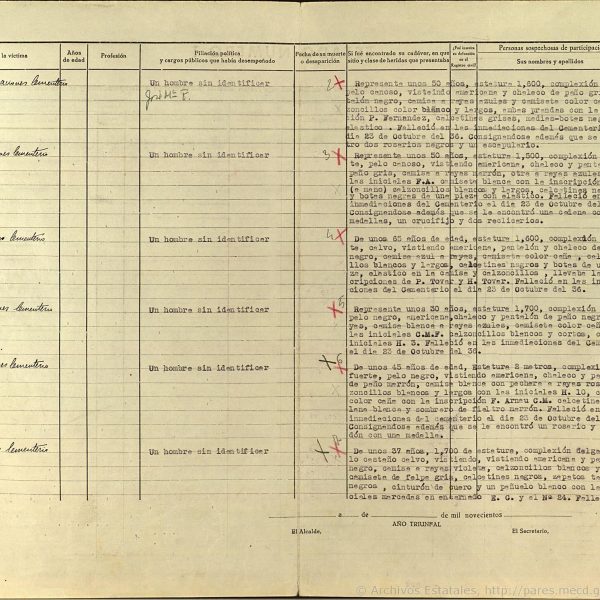 la víctima
Años
de edad
Profesión
Filiación política
y cargos públicos que había desempeñado
Fecha de su muerte
o desaparición
Si fué encontrado su cadáver, en qué
sitio y clase de heridas que presentaba
¿Fué inscrita
su defunción
en el
Registro civil?
Personas sospechosas de participació
Sus nombres y apellidos
Cementerio
Un hombre sin identificar
José Mª P.
2
Representa unos 50 años, estatura 1,600, complexión
pelo canoso, vistiendo americana y chaleco de paño gri
talón negro, camisa a rayas azules y camiseta color ca
zoncillos color blanco y largos, ambas prendas con la
ción P. Fernandez, calcetines grises, medias-botas neg
elastico . Falleció en las inmediaciones del Cementeri
dia 23 de Octubre del 36. Consignandose además que se
tro dos rosarios negros y un escapulario.
Cementerio
Un hombre sin identificar
3
Representa unos 50 años, estatura 1,500, complexión
te, pelo canoso, vistiendo americana, chaleco y pante
paño gris, camisa a rayas marrón, otra a rayas azules
las iniciales F.A. camiseta blanca con la inscripción
(a mano) calzoncillos blancos y largos, calcetines ne
y botas negras de una pieza con elastico. Falleció en
inmediaciones del Cementerio el dia 23 de Octubre del
Consignandose además que se le encontró una cadena co
medallas, un crucifijo y dos relicarios.
Cementerio
Un hombre sin identificar
4
De unos 65 años de edad, estatura 1,600, complexión
te, calvo, vistiendo americana, pantalón y chaleco de
negro, camisa azul a rayas, camiseta color caña , calz
llos blancos y largos, calcetines negros y botas de u
za, elastico en la camisa y calzoncillos , llevaba la
cripciones de P. Tovar y H. Tovar. Falleció en las in
ciones del Cementerio el dia 23 de Octubre del 36.
Cementerio
Un hombre sin identificar
5
Representa unos 30 años, estatura 1,700, complexión
pelo negro, americana,chaleco y pantalón de paño negr
yas, camisa blanca a rayas azules, camiseta color cañ
las iniciales C.M.F. calzoncillos blancos y cortos, c
iniciales H. 3. Falleció en las inmediaciones del Cem
el dia 23 de Octubre del 36.
Cementerio
Un hombre sin identificar
6
De unos 45 años de edad, Estatura 2 metros, complexi
fuerte, pelo negro, vistiendo americana, chaleco y pa
de paño marrón, camisa blanca con pechera a rayas ros
zoncillos blancos y largos con las iniciales H. 10, c
color caña con la inscripción F. Arnau C.M. calcetine
lana blanca y sombrero de fieltro marrón. Falleció en
inmediaciones del cementerio el dia 23 de Octubre del
Consignandose además que se le encontró un rosario y
dón con una medalla.
Cementerio
Un hombre sin identificar
De unos 37 años, 1,700 de estatura, complexión delga
lo castaño calvo, vistiendo, vistiendo americana y pa
negro, camisa a rayas violeta, calzoncillos blancos y
camiseta de felpa gris, calcetines negros, zapatos ta
negros , cinturón de cuero y un pañuelo blanco con la
ciales marcadas en encarnado E. C. y el Nº 24. Falle
a de de mil novecientos
AÑO TRIUNFAL
El Alcalde,
El Secretario,
© Archivos Estatales, http://pares.mecd.g